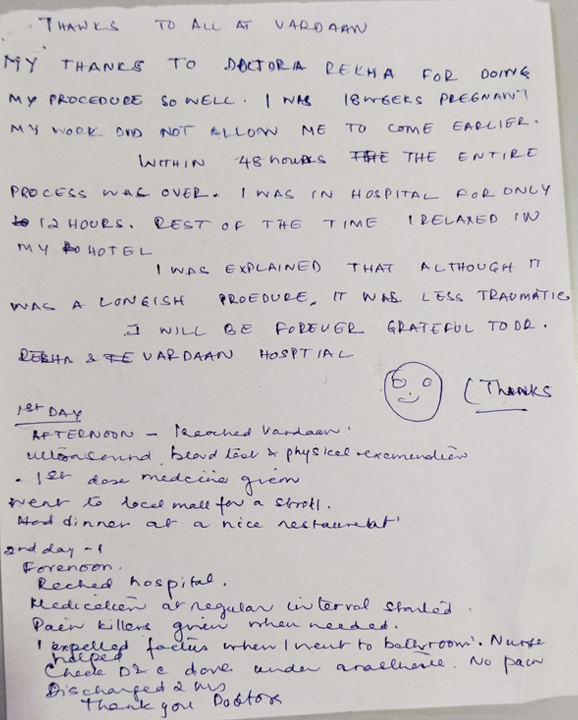 THANKS TO ALL AT VARDAAN
MY THANKS TO DOCTORIA REKHA FOR DOING
MY PROCEDURE SO WELL. I WAS 18 WEEKS PREGNANT
MY WORK DID NOT ALLOW ME TO COME EARLIER.
WITHIN 48 hours THE THE ENTIRE
PROCESS WAS OVER. I WAS IN HOSPITAL FOR ONLY
to 12 HOURS. REST OF THE TIME I RELAXED IN
MY HOTEL
I WAS EXPLAINED THAT ALTHOUGH IT
WAS A LONGISH PROEDURE, IT WAS LESS TRAUMATIC
I WILL BE FOREVER GRATEFUL TO DR.
REKHA & VARDAAN HOSPTIAL
(Thanks
1st DAY
AFTERNOON - Reached Vardaan.
ultrasound, blood test & physical examendien
. 1st dose medcine given
went to local mall for a stroll.
Had dinner at a nice restaurelat'
2nd day - 1
Forenoon.
Reched hospital.
Medication at regular interval started.
Pain killers given when needed.
I expelled foetus when I went to bathroom. Nurse
helped
Check D & C done under anaethesie. No pain
Discharged 2 hrs
Thank you Doctors